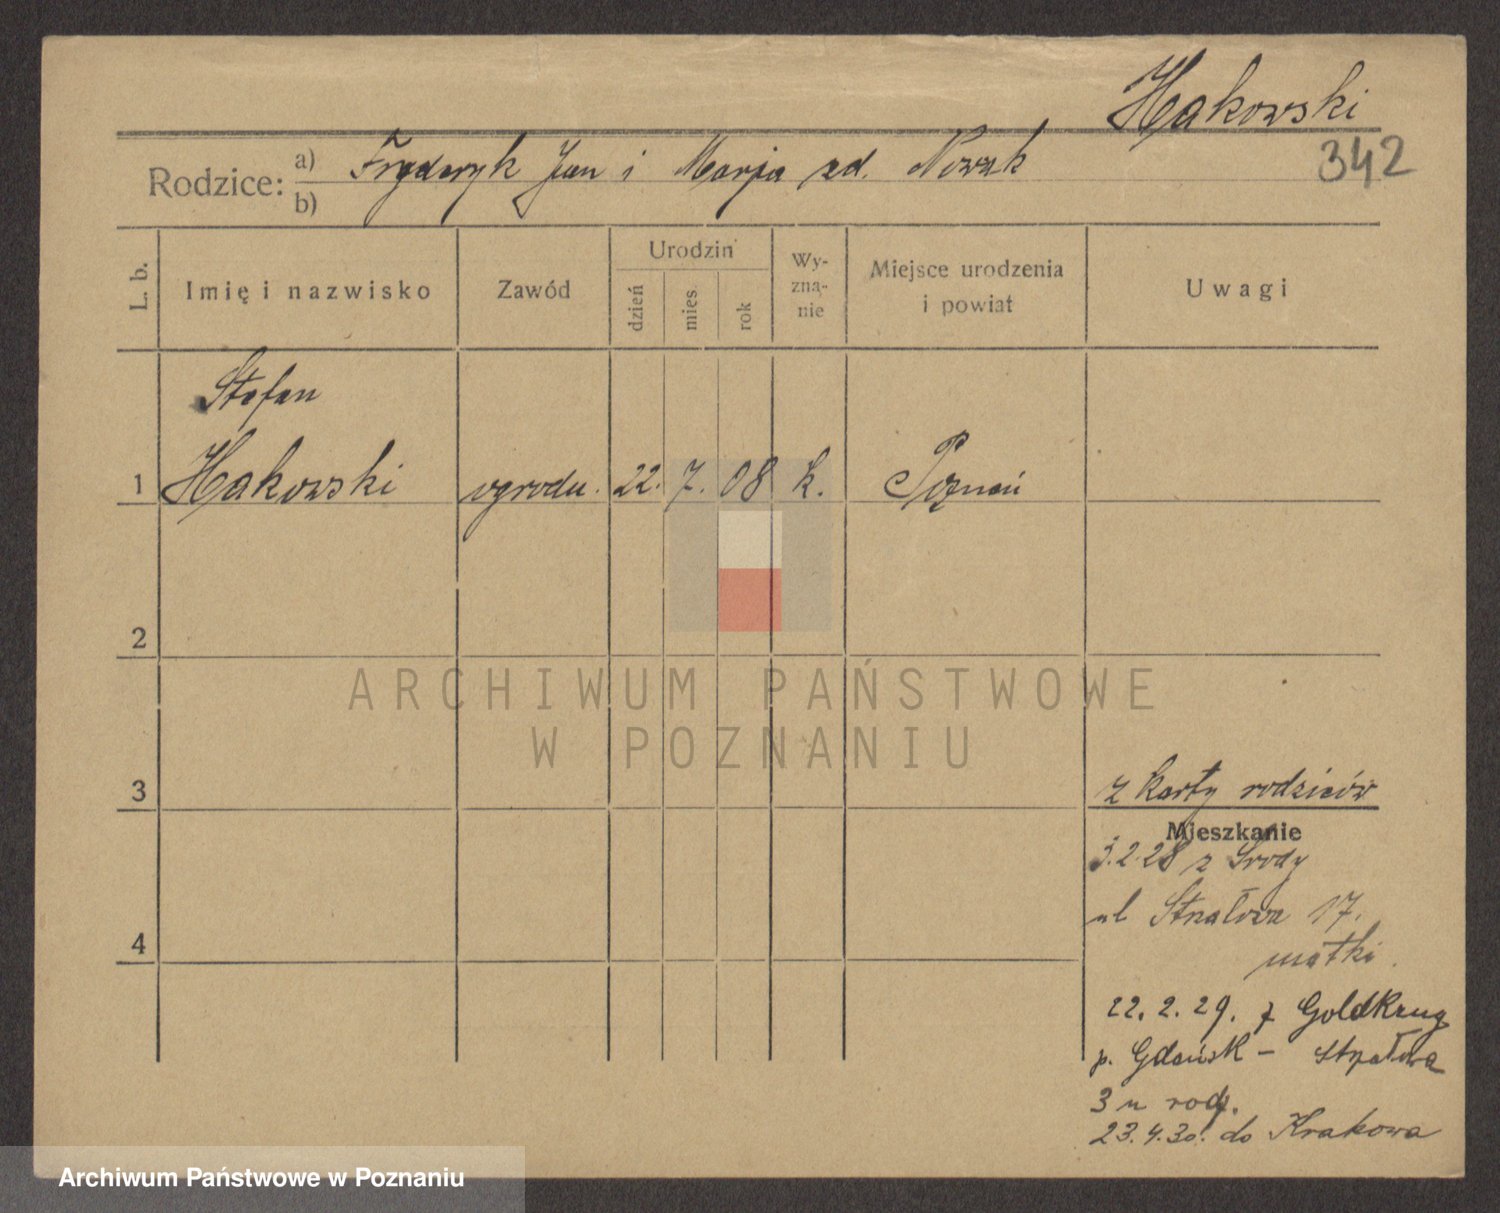 Hakowski
342
Rodzice: a) Fryderyk Jan i Marja zd. Nowak
b)
L. b.
Imię i nazwisko
Zawód
Urodzin
dzień
mies.
rok
Wy-
zna-
nie
Miejsce urodzenia
i powiat
Uwagi
Stefan
1 Hakowski ogrodn. 22. 7. 08 k. Poznań
2
ARCHIWUM PAŃSTWOWE
W POZNANIU
3
z karty rodziców
Mieszkanie
3.2.28 z Środy
4
ul Strzałowa 17.
matki.
22. 2. 29. z Goldkrug
p. Gdańsk - Strzałowa
3 u rodz.
23.4.30. do Krakowa
Archiwum Państwowe w Poznaniu